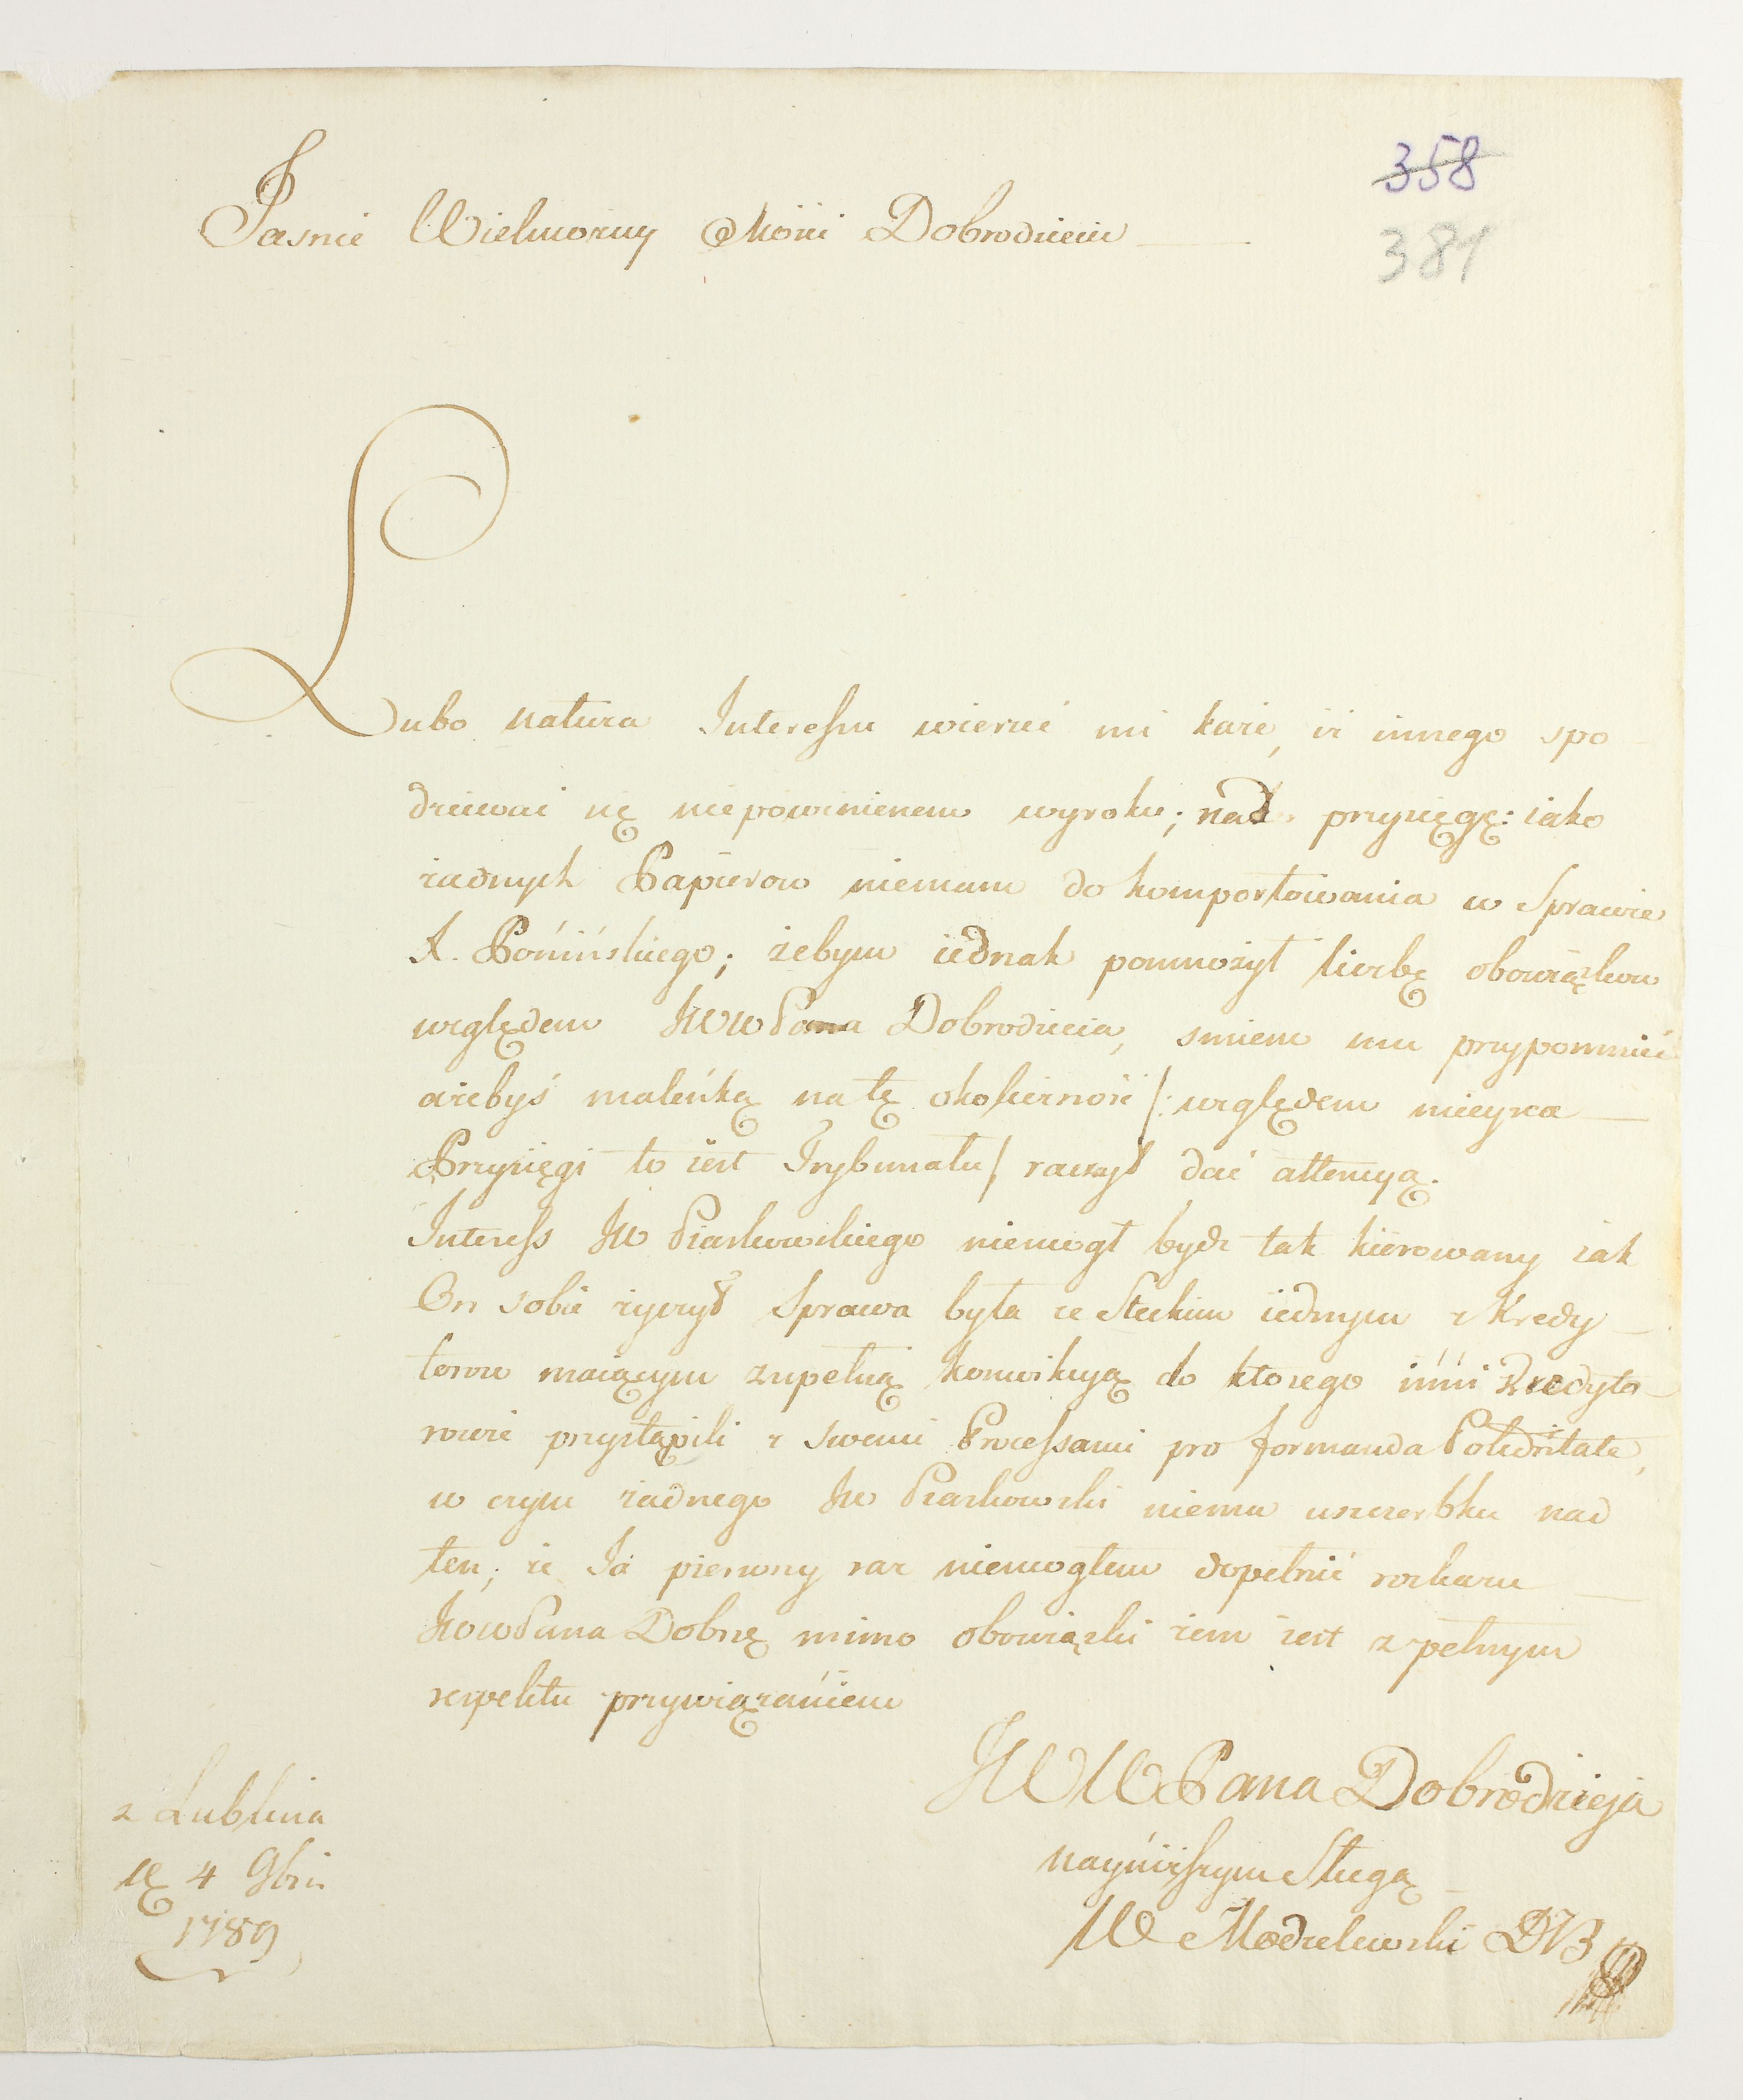 358
381
Jasnie Wielmozny Mości Dobrodzieiu
Lubo natura Interessu wierzić mi każe, iż innego spo
dziewać się niepowinienem wyroku; nad przysięgę: iako
żadnych Papierow niemam do komportowania w Sprawie
X. Ponińskiego; żebym iednak pomnożył liczbę obowiązkow
względem JWWPana Dobrodzieia, smiem mu przypomnieć
ażebyś maleńką na tę okoliczność /: względem mieysca
Przysięgi to iest Trybunału / raczył dać attencyą.
Interess JW Piaskowskiego niemogł bydz tak kierowany iak
On sobie życzył Sprawa była ze Steckim iednym z Kredy
torow maiącym zupełną konwikcyą do ktorego inni Kredyto
rowie przystąpili z swemi Processami pro formanda Potioritate,
w czym żadnego JW Piaskowski niema uszczerbku nad
ten; że Ja pierwszy raz niemogłem dopełnić rozkazu
JWWPana Dobrę mimo obowiązki iem iest z pełnym
respektu przywiązaniem
JWWPana Dobrodzieja
nayniższym Sługą
W Modzelewski DB
z Lublina
4 9bris
1789